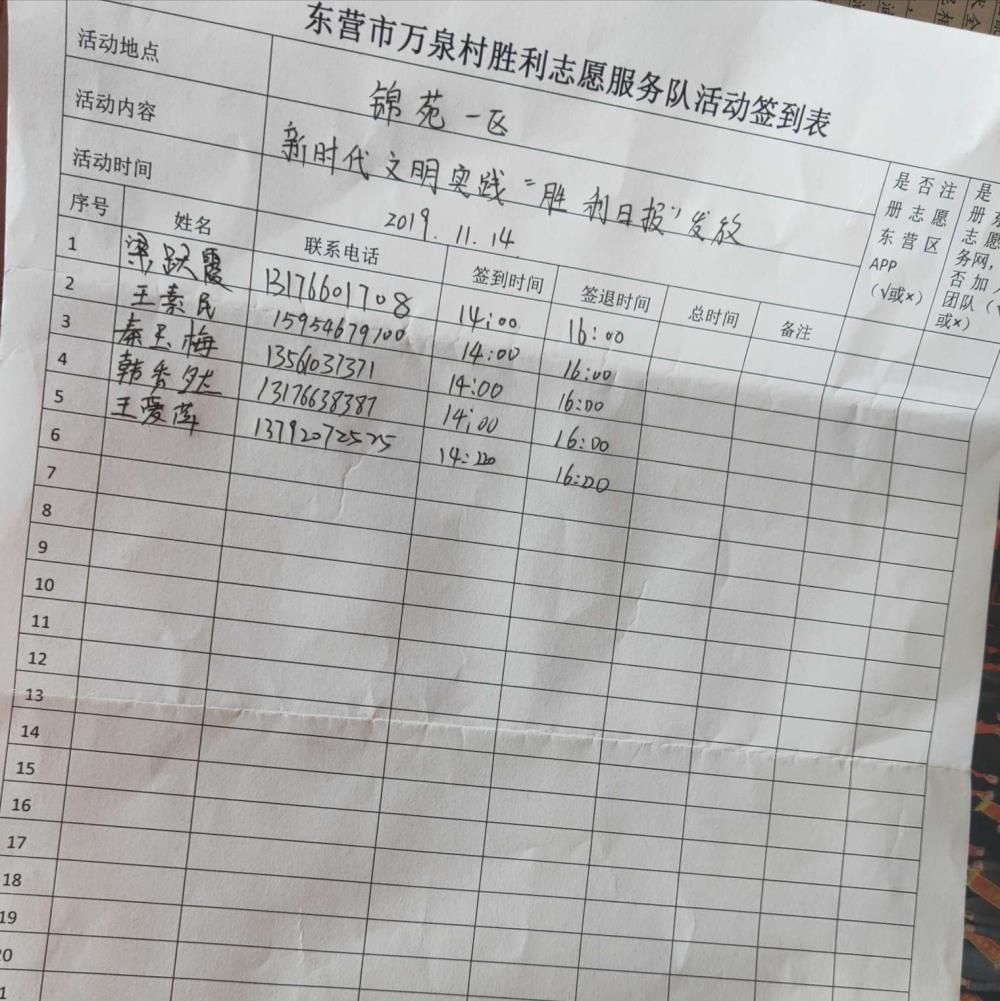 东营市万泉村胜利志愿服务队活动签到表
活动地点 锦苑一区
活动内容 新时代文明实践“胜利日报”发放
活动时间 2019.11.14
序号 姓名 联系电话 签到时间 签退时间 总时间 备注
是否注
册志愿
东营区
APP
(√或×)
1 梁跃霞 13176601708 14:00 16:00
2 王素民 15954679700 14:00 16:00
3 秦玉梅 13561037371 14:00 16:00
4 韩香 13176638387 14:00 16:00
5 王爱萍 13792072525 14:00 16:00
6
7
8
9
10
11
12
13
14
15
16
17
18
19